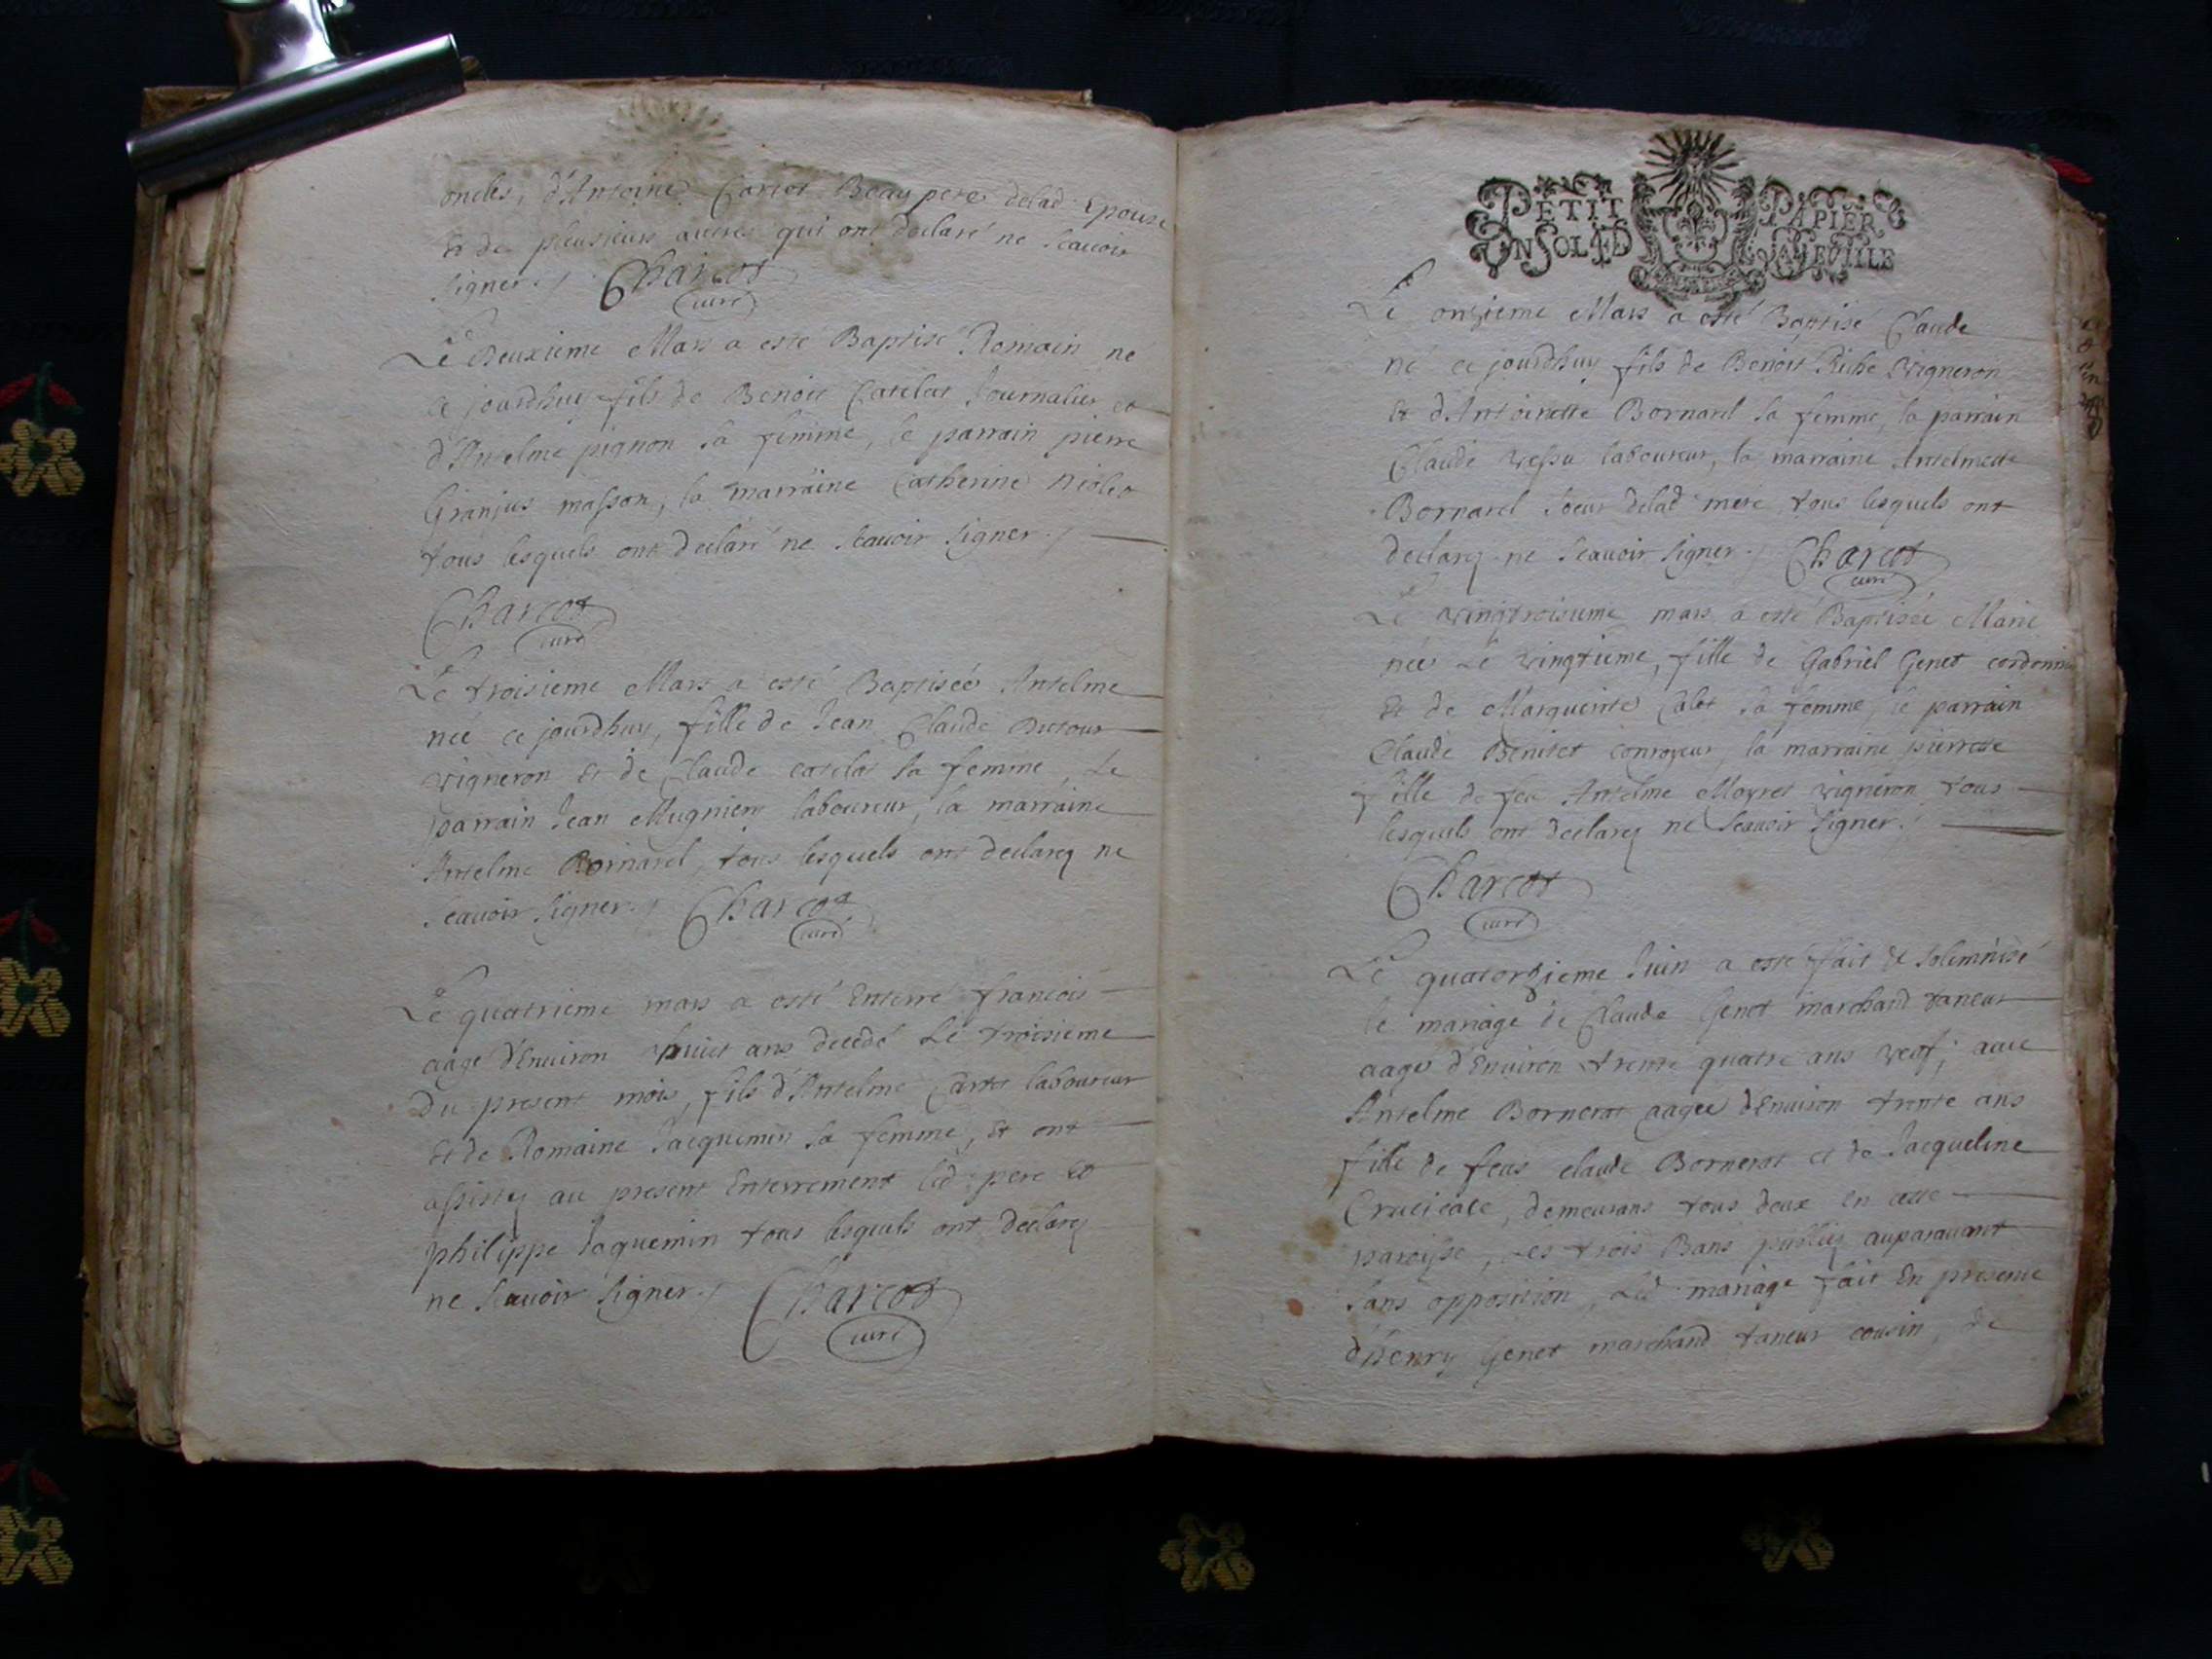 oncles, d'Antoine Cartet Beaupere delad Epouse
et de plusieurs autres qui ont declaré ne scavoir
signer./ Charcot
curé
Le Deuxieme Mars a esté Baptisé Romain né
ce jourdhuy fils de Benoit Catelat Journalier et
d'Antelme pignon sa femme, le parrain pierre
Granjus masson, la marraine Catherine
tous lesquels ont declaré ne scavoir signer./
Charcot
curé
Le troisieme Mars a esté Baptisée Antelme
née ce jourdhuy, fille de Jean Claude Dutour
vigneron et de Claude catelat sa femme, Le
parrain Jean Mugnier laboureur, la marraine
Antelme Bornarel, tous lesquels ont declarez ne
scavoir signer./ Charcot
curé
Le quatrieme mars a esté Enterré francois
aagé d'Environ huict ans decedé Le troisieme
du present mois, fils d'Antelme Cartet laboureur
et de Romaine Jacquemin sa femme, et ont
assistez au present Enterrement led. pere et
philippe Jaquemin tous lesquels ont declarez
ne scavoir signer./ Charcot
curé
PETIT PAPIER
UN SOL LA FEUILLE
Le onzieme Mars a esté Baptisé Claude
né ce jourdhuy fils de Benoit Riche vigneron
et d'Antoinette Bornarel sa femme, le parrain
Claude laboureur, la marraine Antelmette
Bornarel soeur delad. mere, tous lesquels ont
declarez ne scavoir signer./ Charcot
curé
Le vingtroisieme mars a esté Baptisée Marie
née Le vingtieme, fille de Gabriel Genet cordonnier
et de Marguerite Calet sa femme, le parrain
Claude Benitet conroyeur, la marraine pierrette
fille de feu Antelme Moyret vigneron tous
lesquels ont declarez ne scavoir signer./
Charcot
curé
Le quatorzieme Juin a esté fait et solemnisé
le mariage de Claude Genet marchand taneur
aagé d'Environ trente quatre ans veuf, avec
Antelme Bornerat aagée d'Environ trente ans
fille de feus claude Bornerat et de Jacqueline
demeurans tous deux en cette
paroisse, Les trois Bans publiez auparavant
sans opposition, Led. mariage fait En presence
d'henry Genet marchand taneur cousin, de